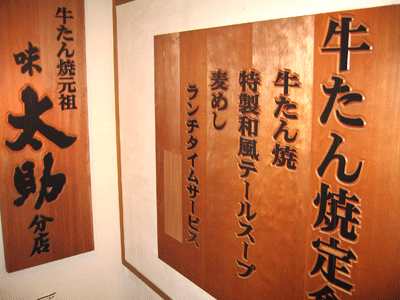 牛たん焼元祖
味太助分店
牛たん焼定食
牛たん焼
特製和風テールスープ
麦めし
ランチタイムサービス